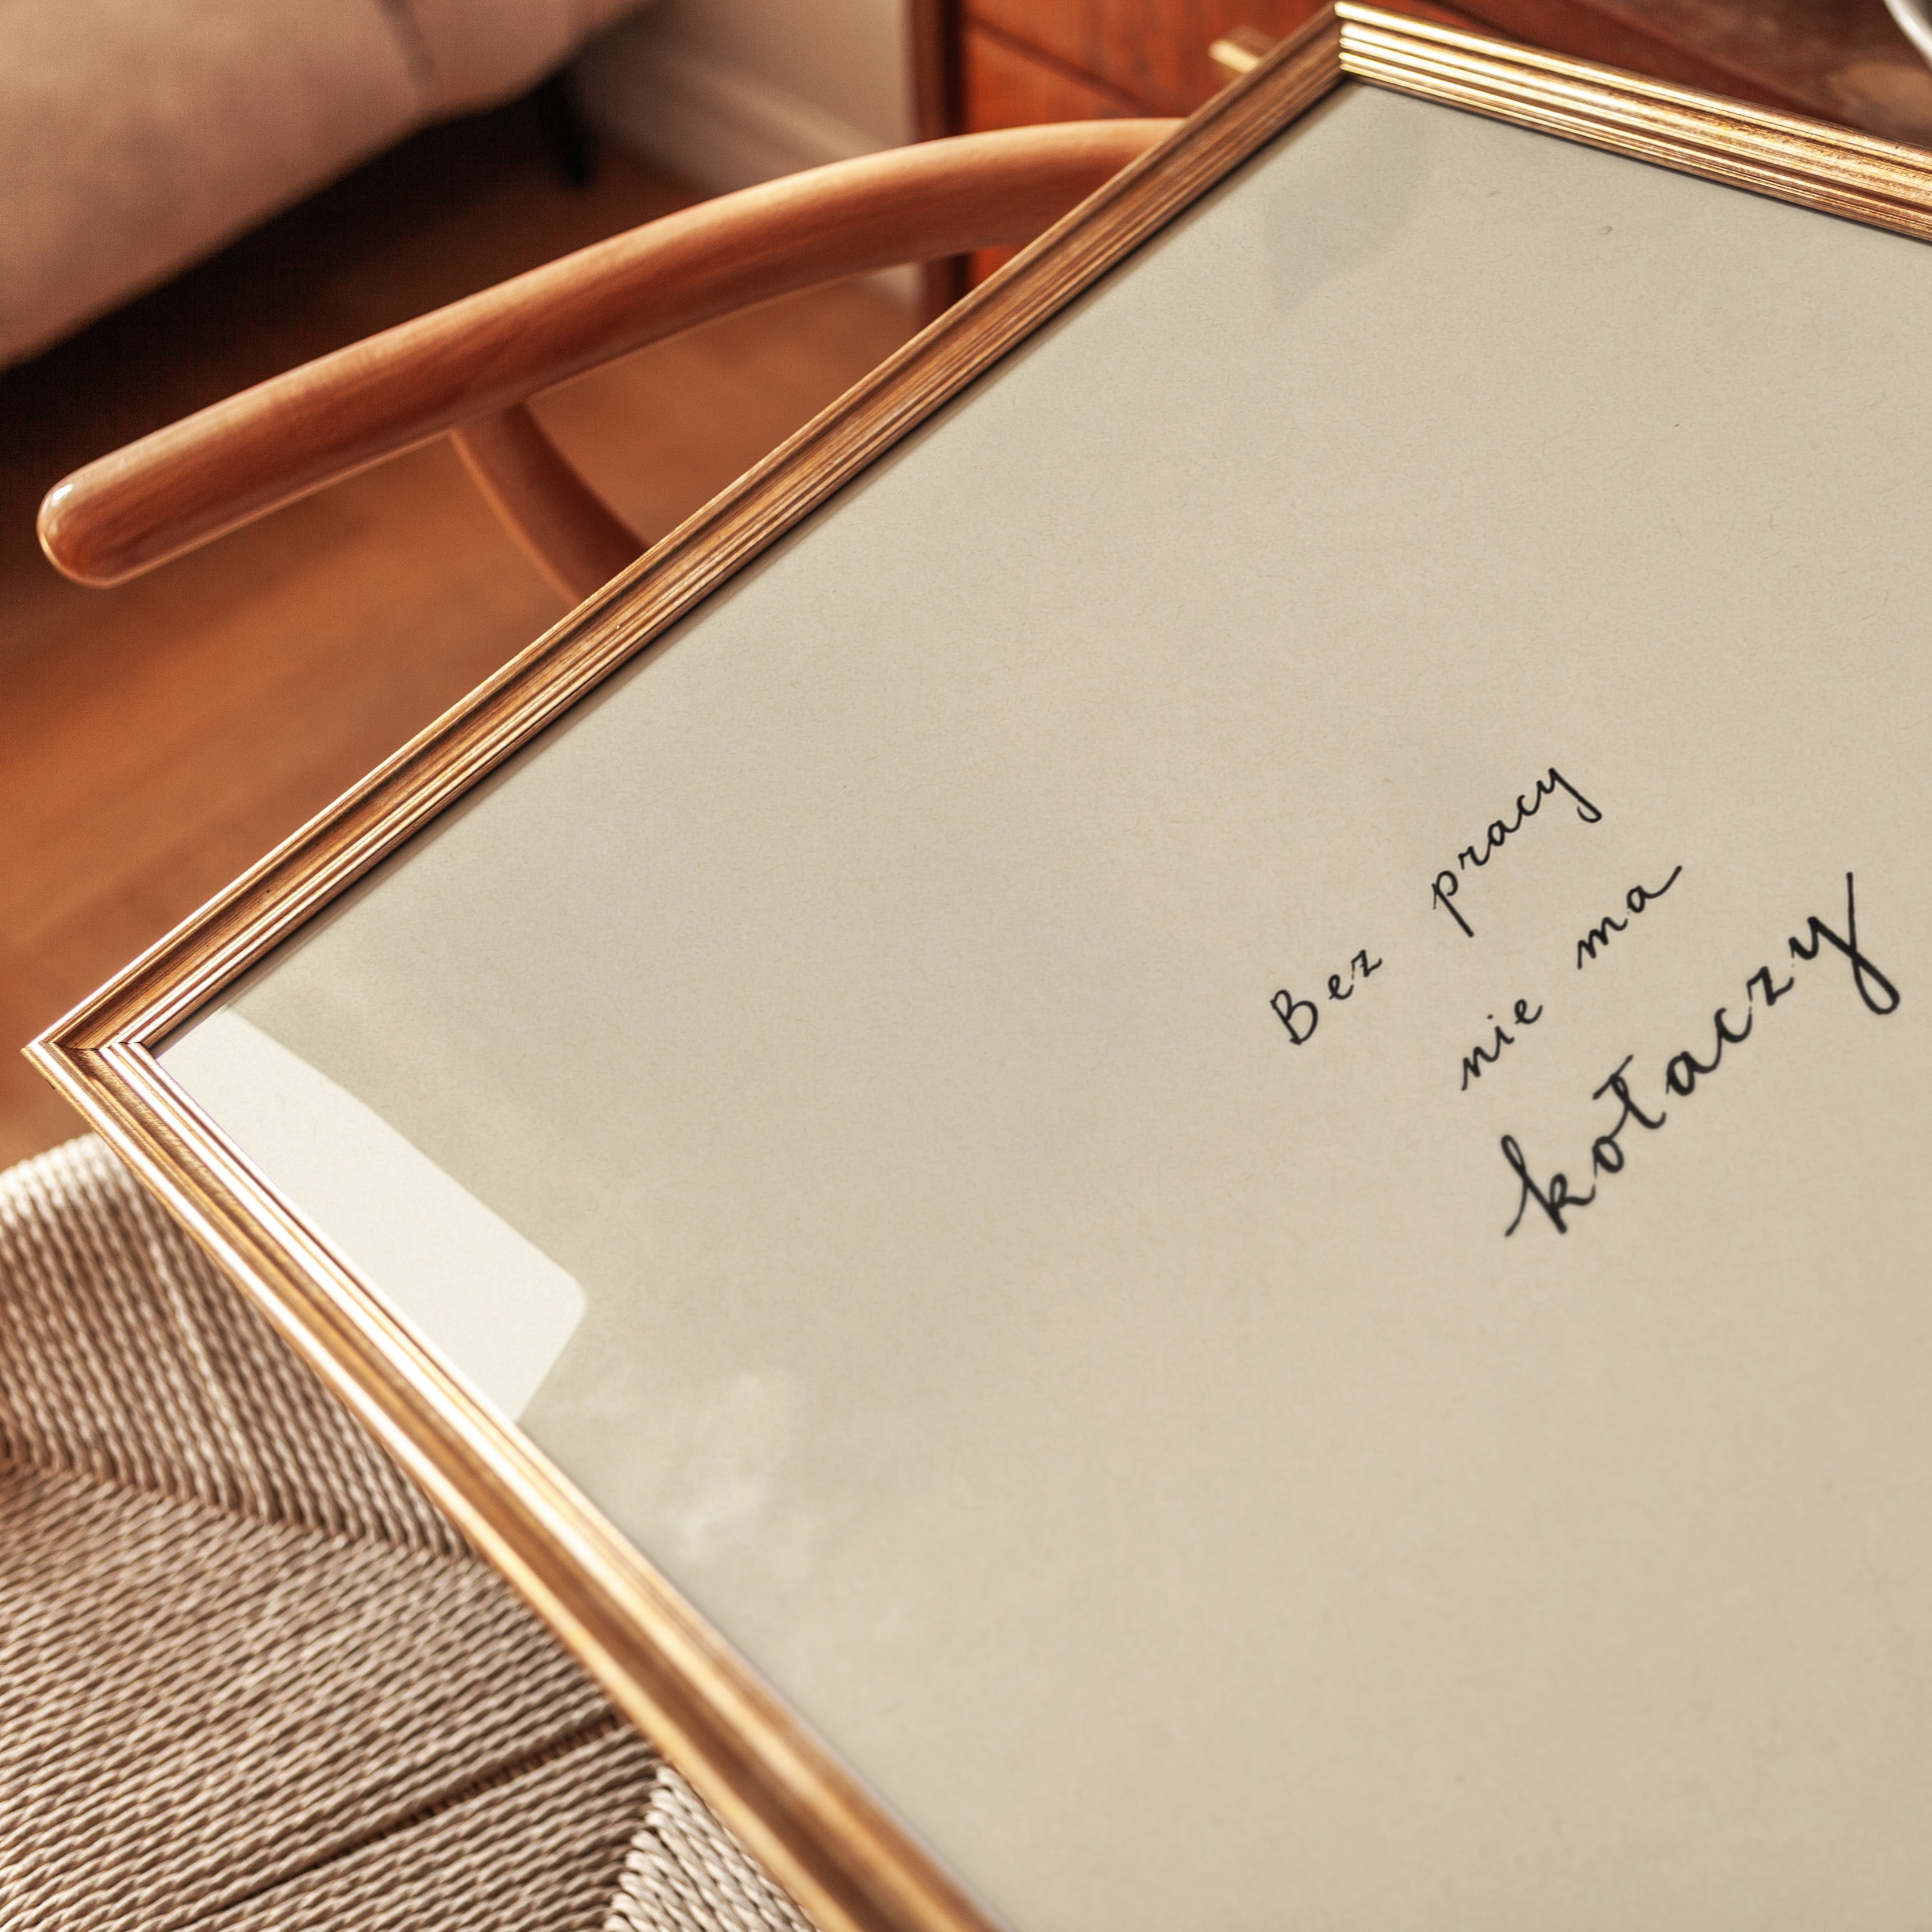 Bez pracy
nie ma
kołaczy